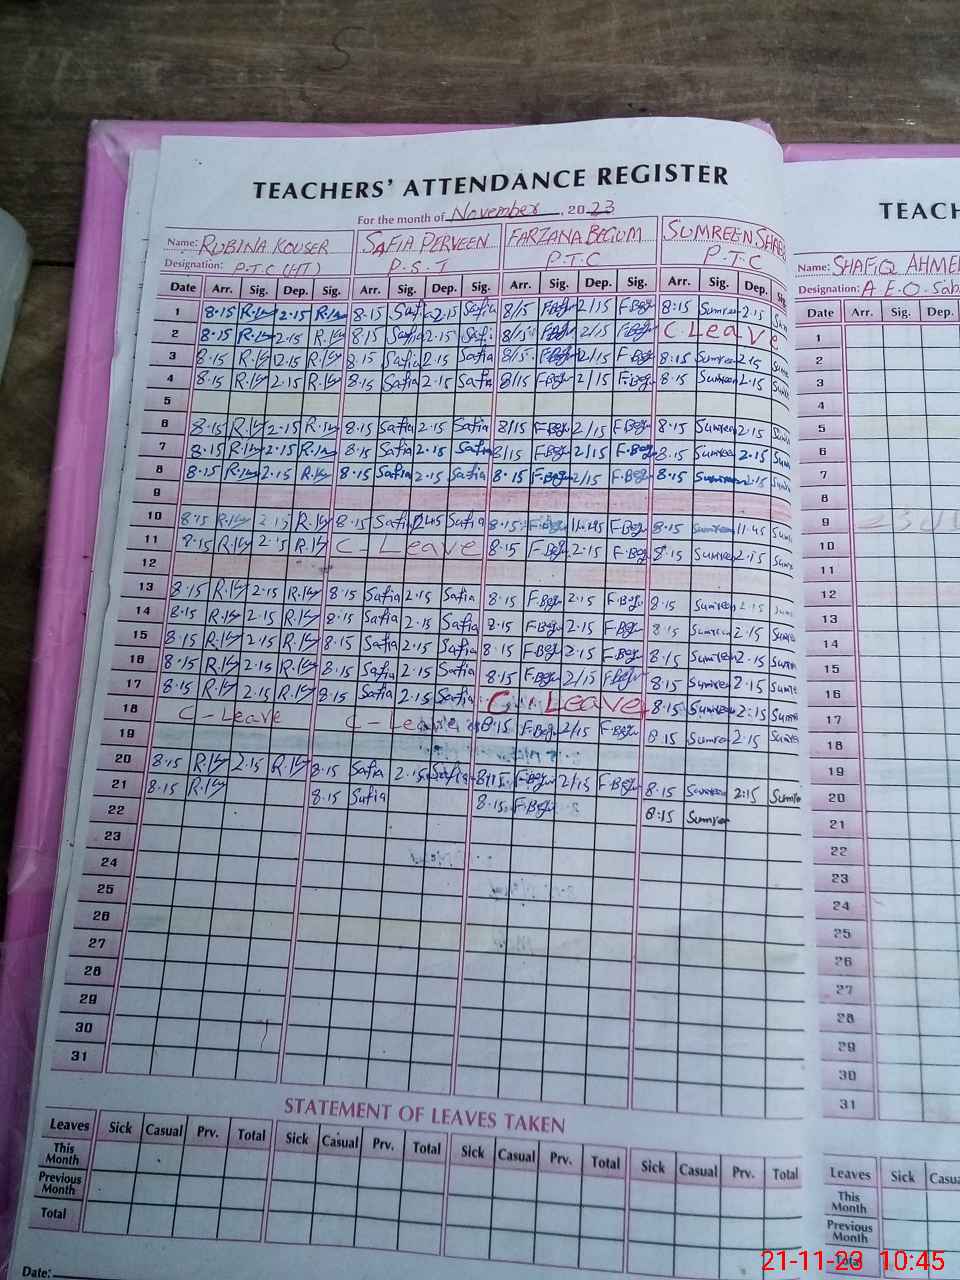 TEACHERS' ATTENDANCE REGISTER
For the month of November, 2023
Name: RUBINA KOUSER SAFIA PERVEEN FARZANA BEGUM SUMREEN
Designation: P.T.C (HT) P.S.T P.T.C P.T.C
Date Arr. Sig. Dep. Sig. Arr. Sig. Dep. Sig. Arr. Sig. Dep. Sig. Arr. Sig. Dep. Sig.
1 8.15 2.15 8.15 Safia 2.15 Safia 8/15 F.Beg 2/15 F.Beg 8:15 Sumreen 2.15
2 8.15 2.15 8.15 Safia 2.15 Safia 8/15 F.Beg 2/15 F.Beg C Leave
3 8.15 2.15 8.15 Safia 2.15 Safia 8/15 F.Beg 2/15 F.Beg 8.15 Sumreen 2.15
4 8.15 2.15 8.15 Safia 2.15 Safia 8/15 F.Beg 2/15 F.Beg 8.15 Sumreen 2.15
5
6 8.15 2.15 8.15 Safia 2.15 Safia 8/15 F.Beg 2/15 F.Beg 8.15 Sumreen 2.15
7 8.15 2.15 8.15 Safia 2.15 Safia 8/15 F.Beg 2/15 F.Beg 8.15 Sumreen 2.15
8 8.15 2.15 8.15 Safia 2.15 Safia 8.15 F.Beg 2/15 F.Beg 8.15 Sumreen 2.15
9
10 8.15 2.15 8.15 Safia Safia 8.15 F.Beg 11.45 F.Beg 8.15 Sumreen 11.45
11 8.15 2.15 C-Leave 8.15 F.Beg 2.15 F.Beg 8.15 Sumreen 2.15
12
13 8.15 2.15 8.15 Safia 2.15 Safia 8.15 F.Beg 2.15 F.Beg 8.15 Sumreen 2.15
14 8.15 2.15 8.15 Safia 2.15 Safia 8.15 F.Beg 2.15 F.Beg 8.15 Sumreen 2.15
15 8.15 2.15 8.15 Safia 2.15 Safia 8.15 F.Beg 2.15 F.Beg 8.15 Sumreen 2.15
16 8.15 2.15 8.15 Safia 2.15 Safia 8.15 F.Beg 2/15 F.Beg 8.15 Sumreen 2.15
17 8.15 2.15 8.15 Safia 2.15 Safia C. Leave 8.15 Sumreen 2:15
18 C-Leave C-Leave 8.15 F.Beg 2/15 F.Beg 8.15 Sumreen 2.15
19
20 8.15 2.15 8.15 Safia 2.15 Safia 8/15 F.Beg 2/15 F.Beg 8.15 Sumreen 2:15 Sumreen
21 8.15 8.15 Safia 8.15 F.Beg 8:15 Sumreen
22
23
24
25
26
27
28
29
30
31
STATEMENT OF LEAVES TAKEN
Leaves Sick Casual Prv. Total Sick Casual Prv. Total Sick Casual Prv. Total Sick Casual Prv. Total
This Month
Previous Month
Total
Date:
TEACH
Name: SHAFIQ AHME
Designation: A.E.O.
Date Arr. Sig. Dep.
1
2
3
4
5
6
7
8
9
10
11
12
13
14
15
16
17
18
19
20
21
22
23
24
25
26
27
28
29
30
31
Leaves Sick Casu
This Month
Previous Month
Total
21-11-23 10:45